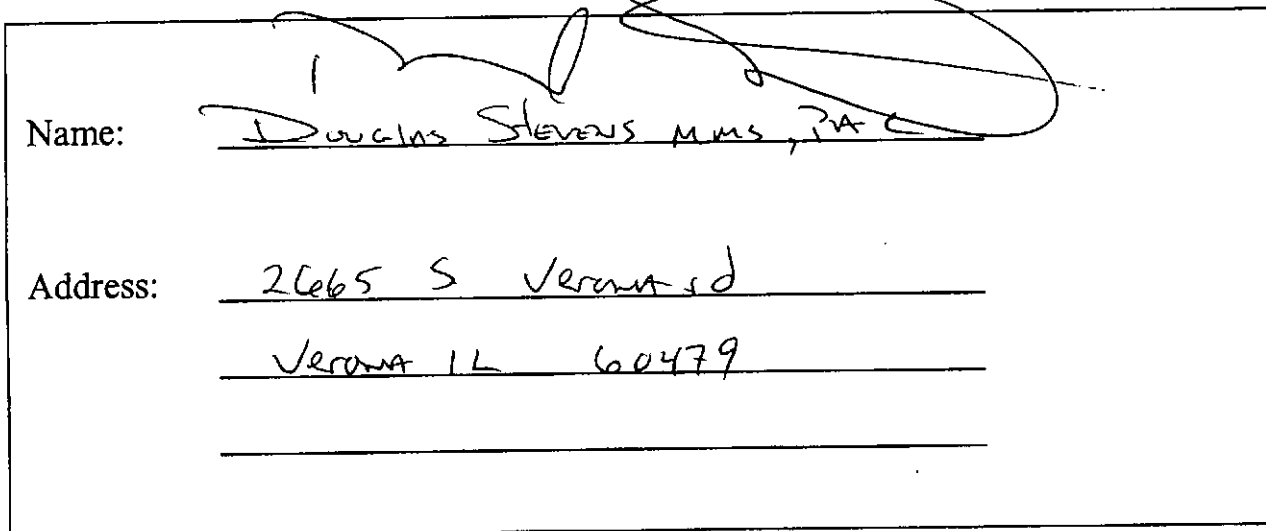 Name: Douglas Stevens MMS, PAC
Address: 2665 S Verona rd
Verona IL 60479